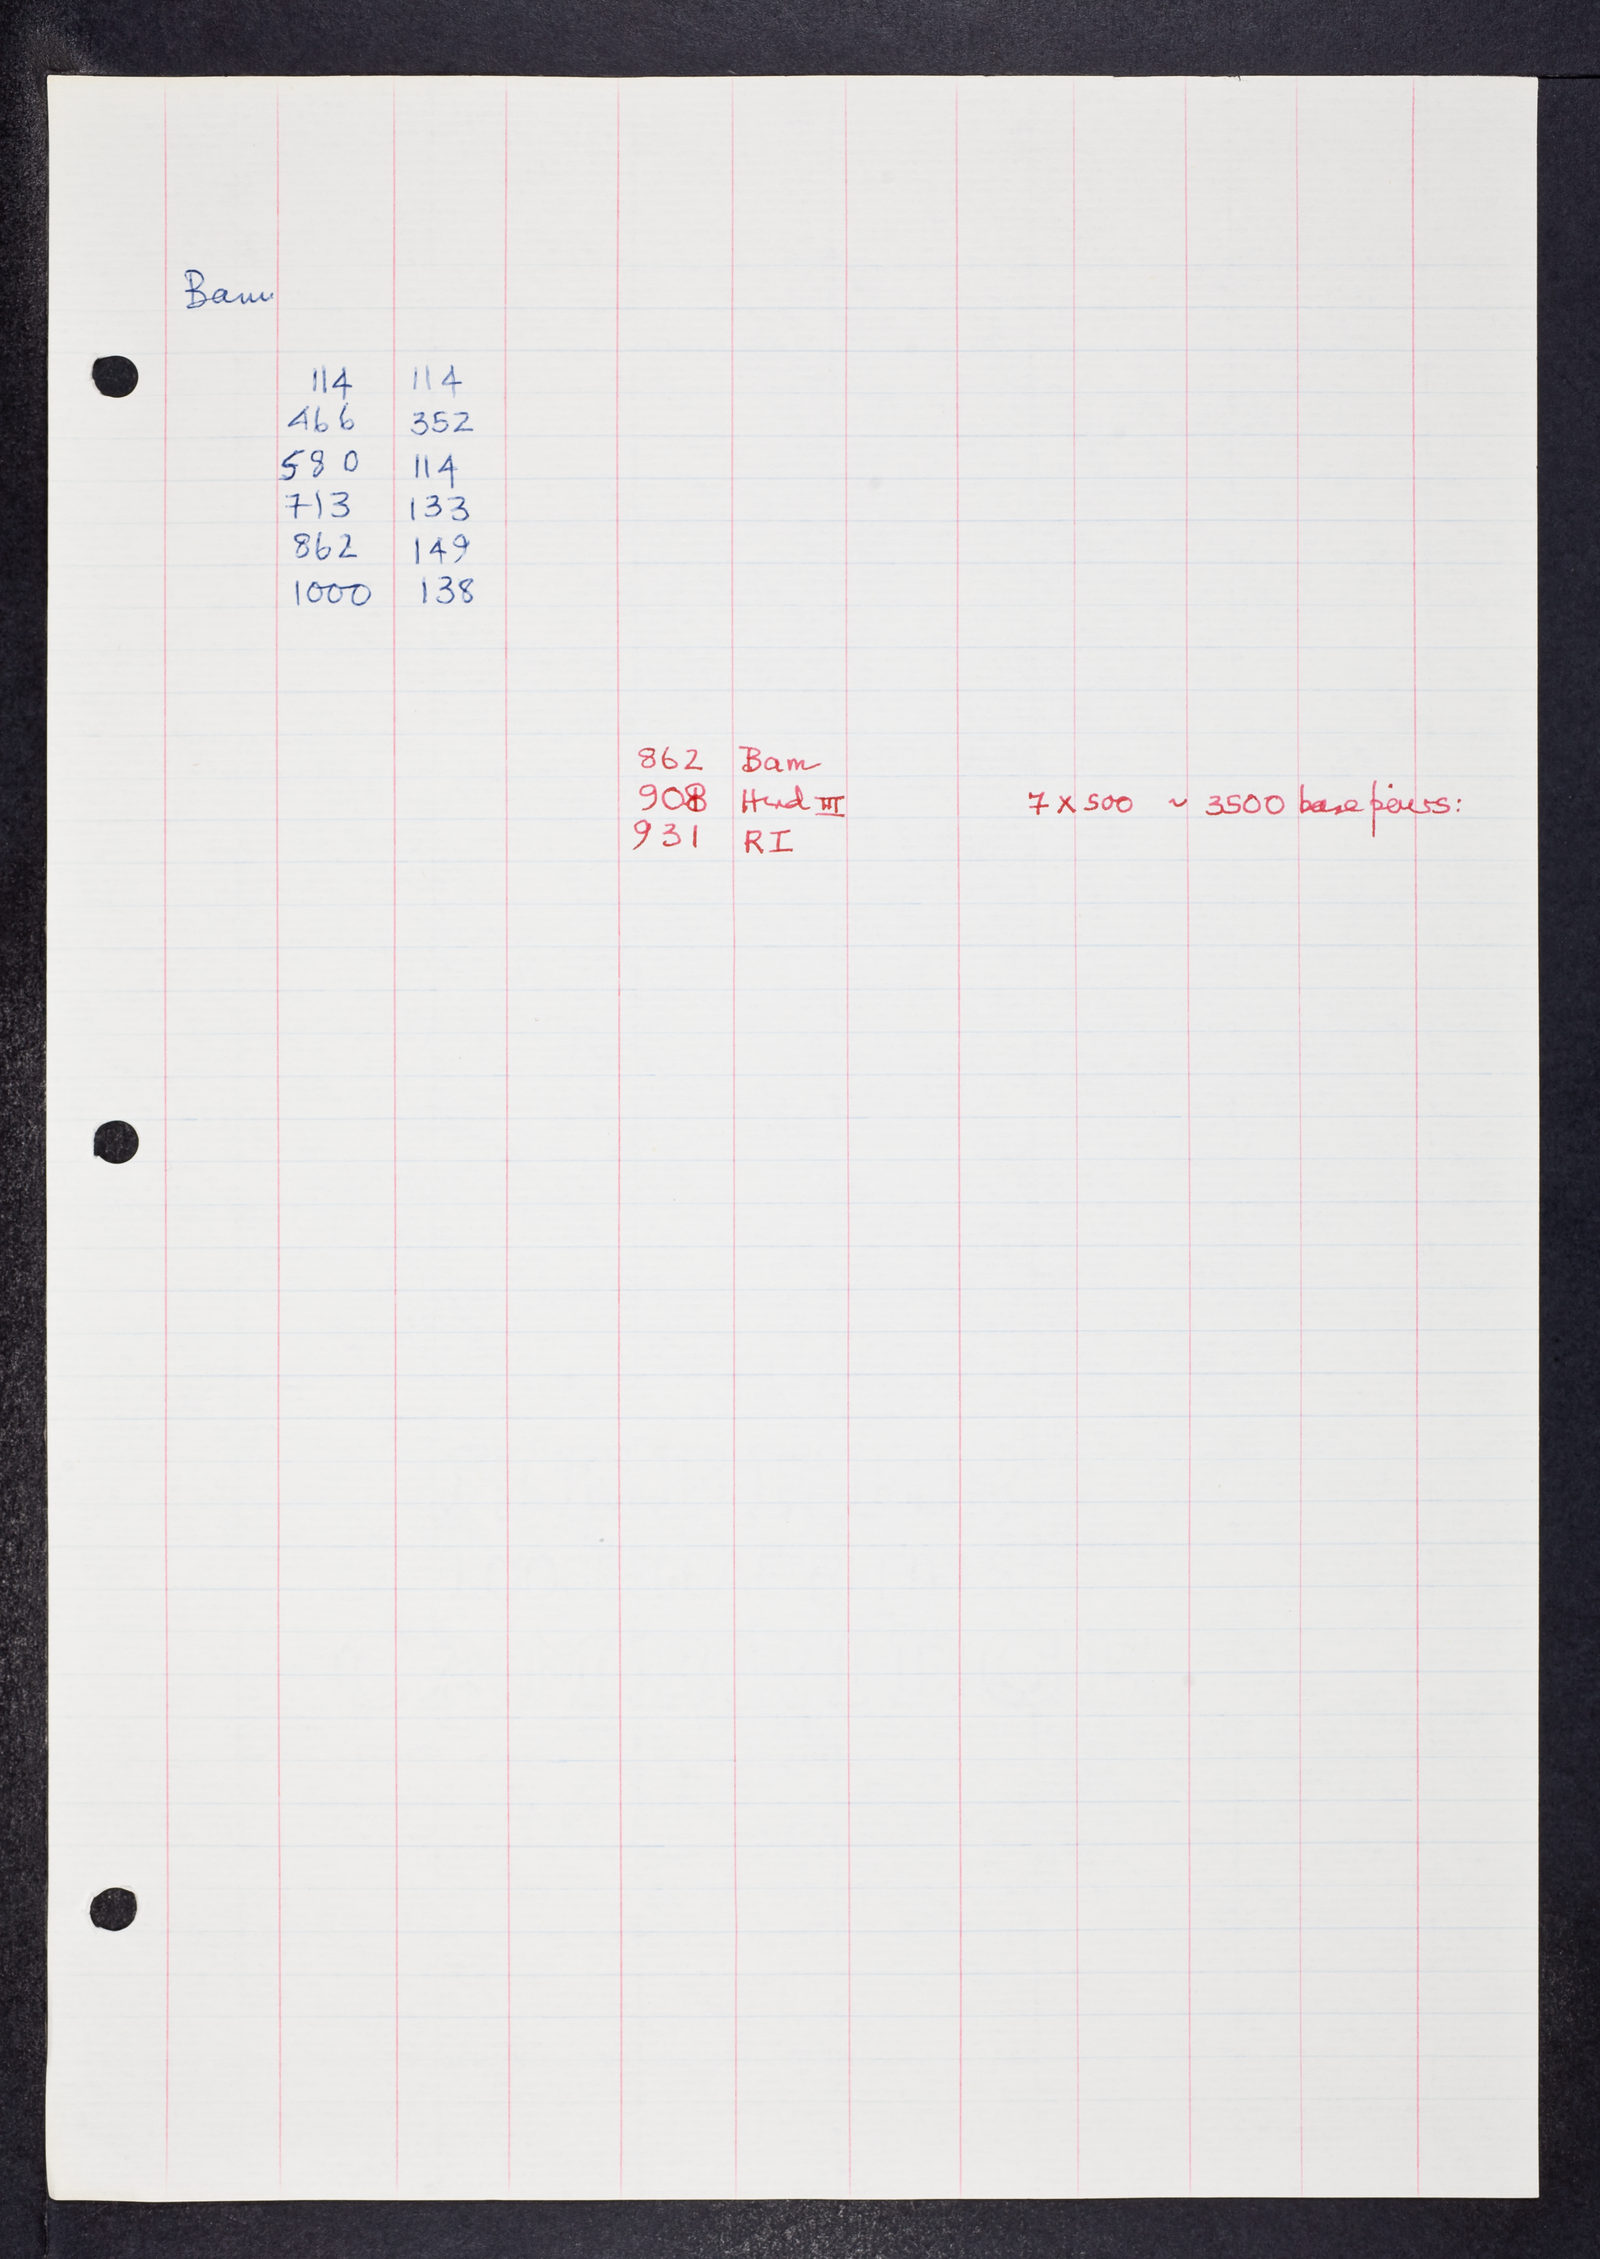 Bam
114 114
466 352
580 114
713 133
862 149
1000 138
862 Bam
908 Hind III 7 x 500 ~ 3500 base pairs:
931 RI